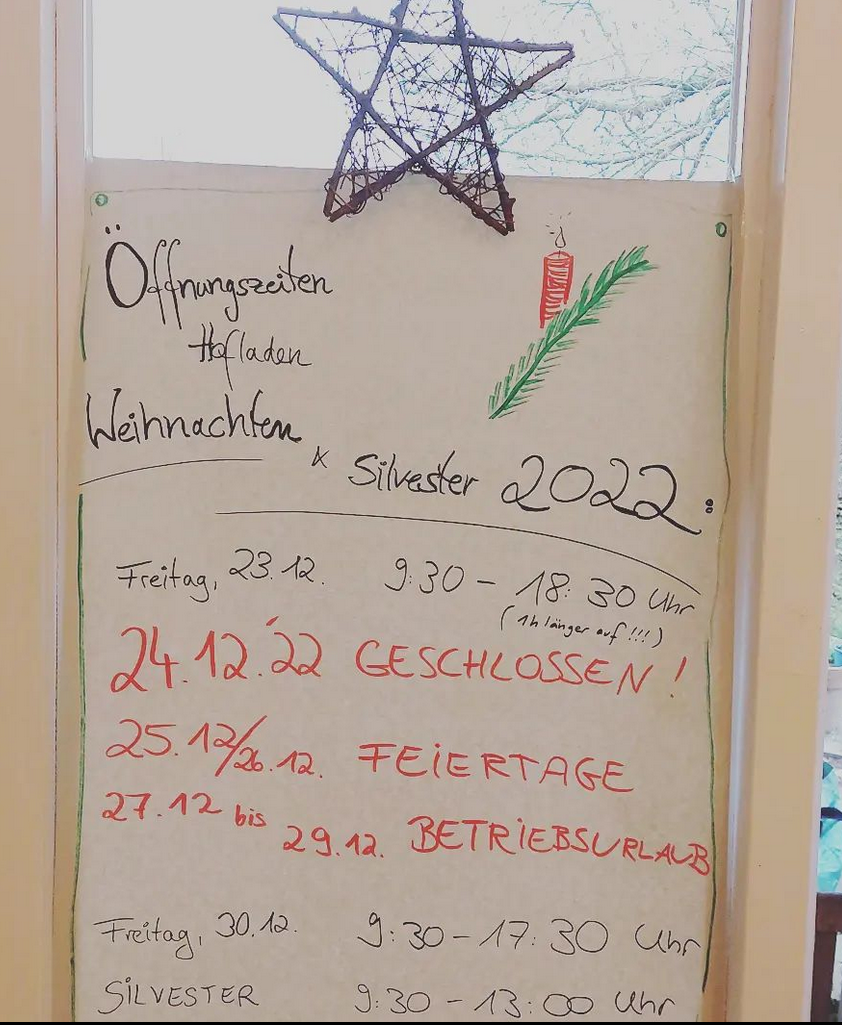 Öffnungszeiten
Hofladen
Weihnachten
& Silvester 2022:
Freitag, 23.12. 9:30 - 18:30 Uhr
(1h länger auf!!!)
24.12.'22 GESCHLOSSEN!
25.12/26.12. FEIERTAGE
27.12 bis 29.12. BETRIEBSURLAUB
Freitag, 30.12. 9:30 - 17:30 Uhr
SILVESTER 9:30 - 13:00 Uhr